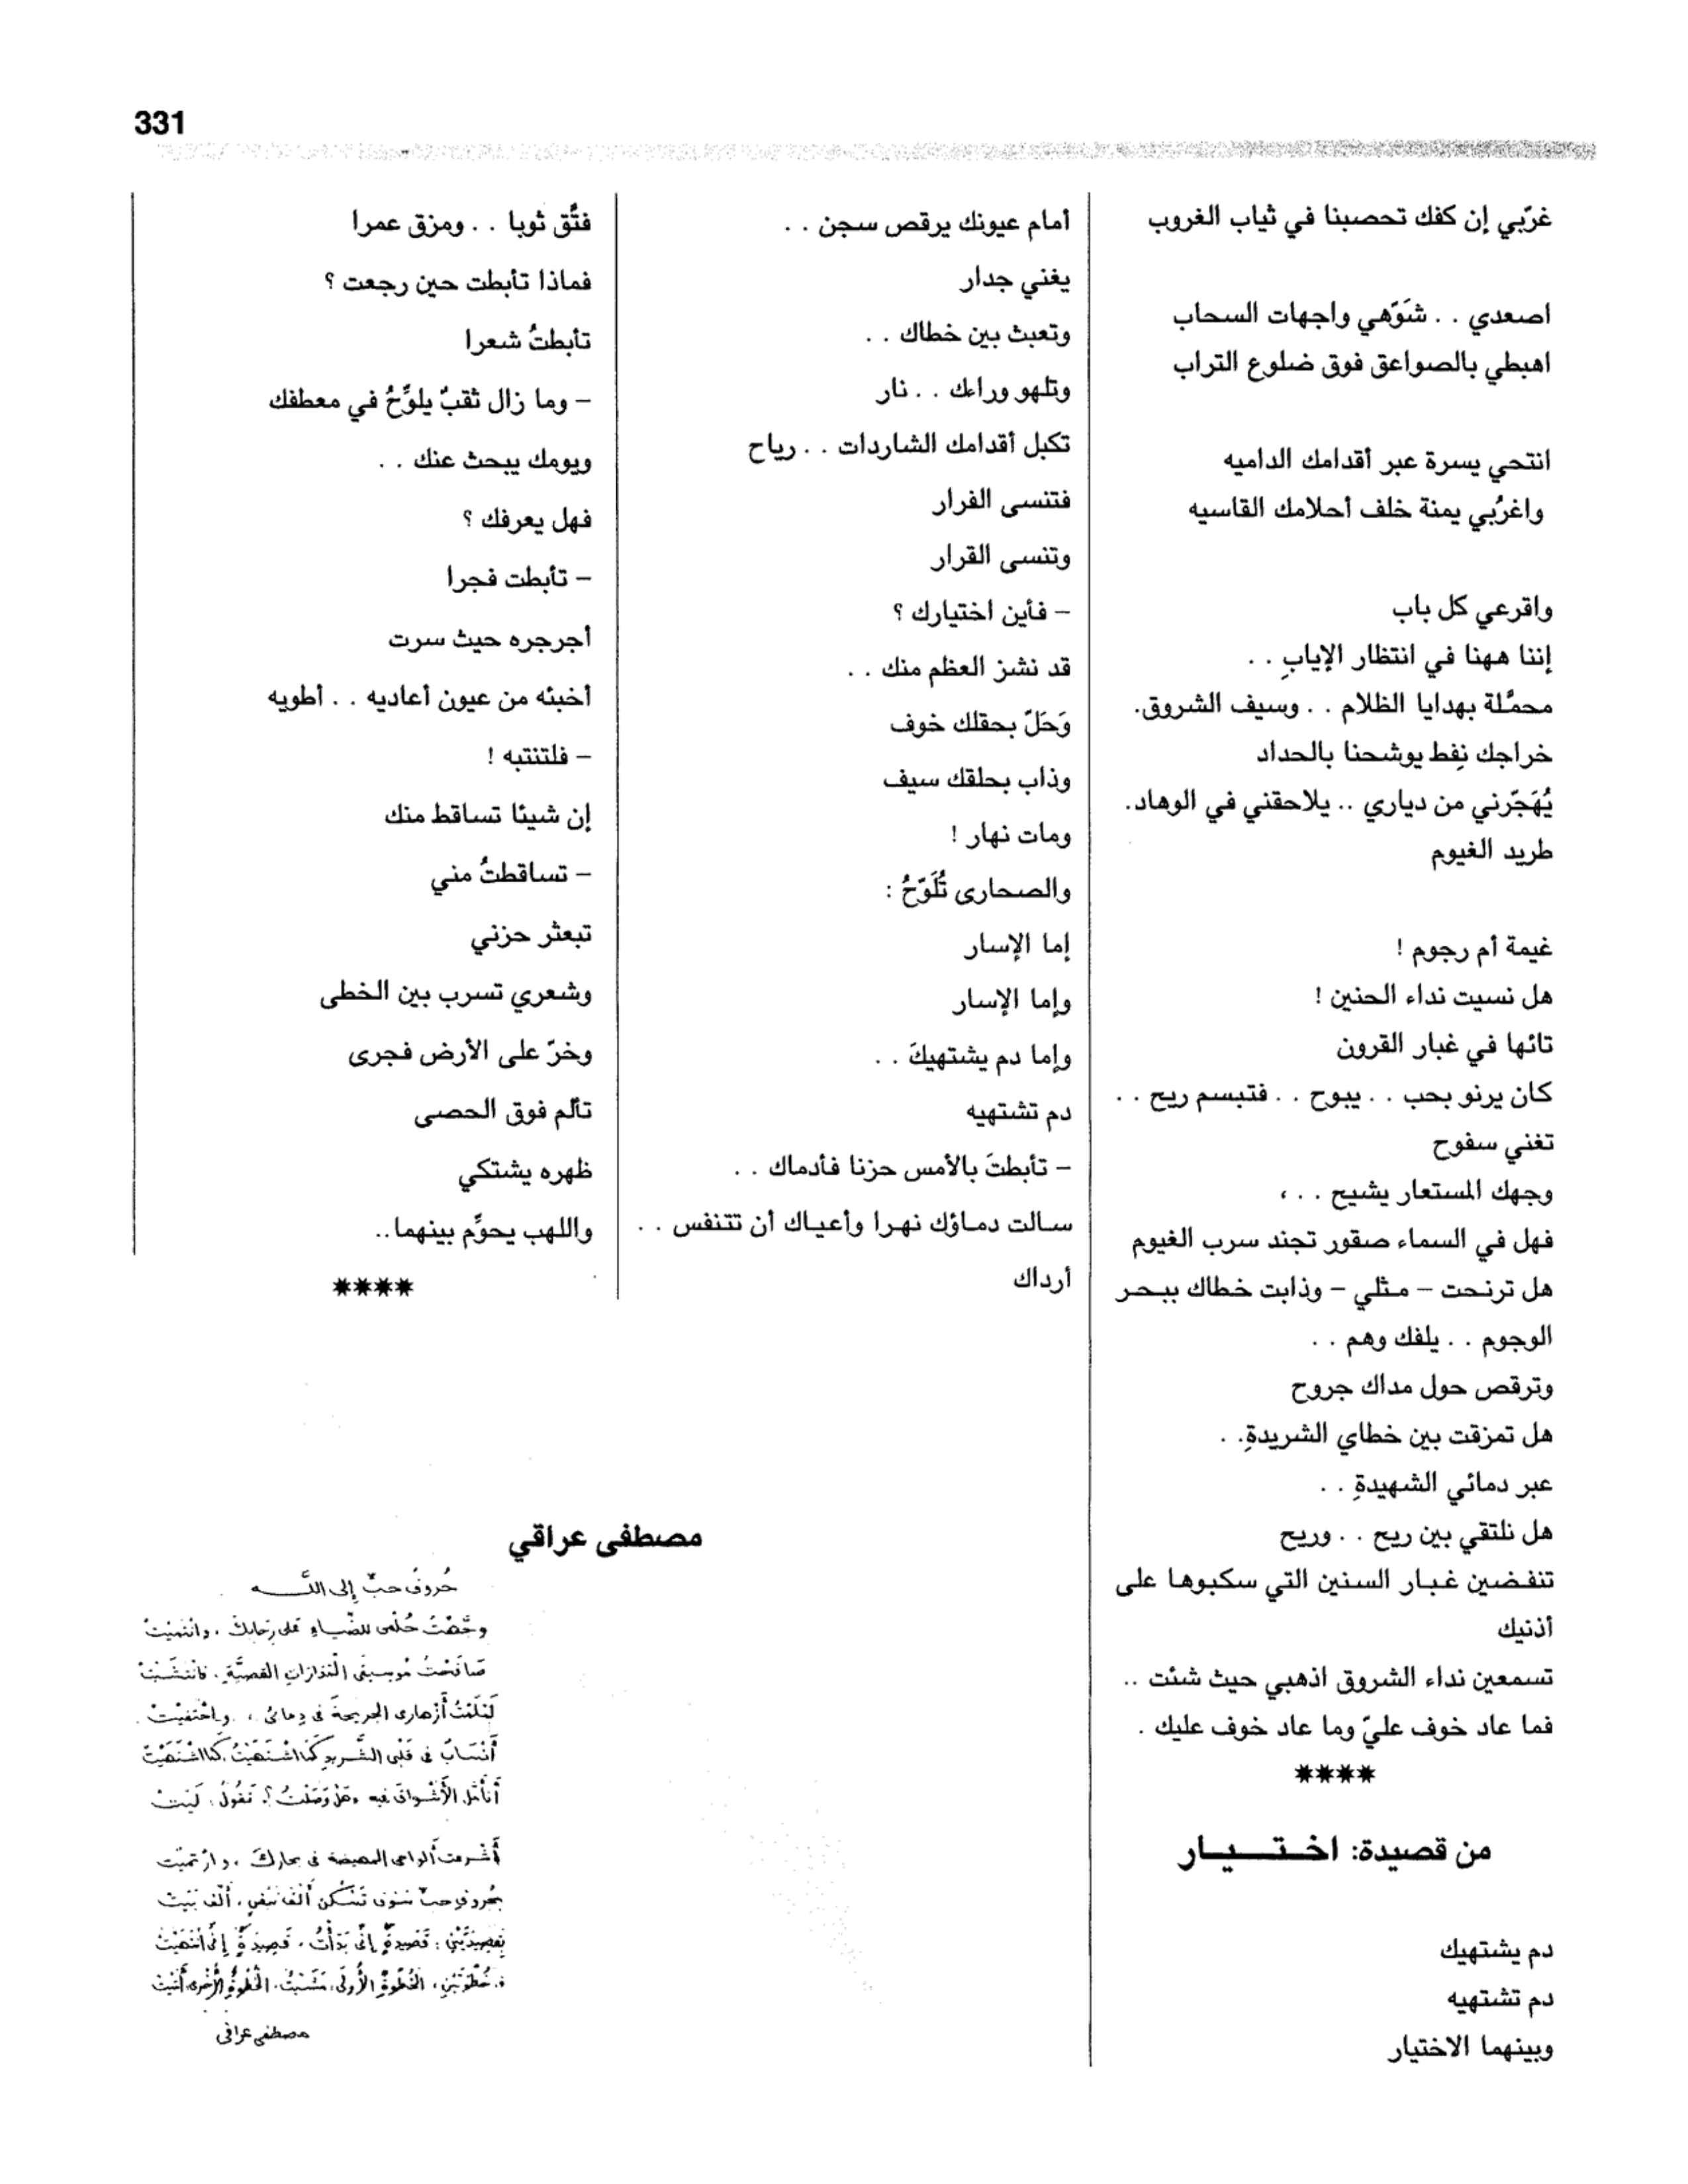 331
غرّبي إن كفك تحصبنا في ثياب الغروب
اصعدي . . شَوّهي واجهات السحاب
اهبطي بالصواعق فوق ضلوع التراب
انتحي يسرة عبر أقدامك الداميه
واغرُبي يمنة خلف أحلامك القاسيه
واقرعي كل باب
إننا ههنا في انتظار الإيابِ . .
محمَّلة بهدايا الظلام . . وسيف الشروق.
خراجك نِفط يوشحنا بالحداد
يُهَجّرني من دياري .. يلاحقني في الوهاد.
طريد الغيوم
غيمة أم رجوم !
هل نسيت نداء الحنين !
تائها في غبار القرون
كان يرنو بحب . . يبوح . . فتبسم ريح . .
تغني سفوح
وجهك المستعار يشيح . . ،
فهل في السماء صقور تجند سرب الغيوم
هل ترنحت – مثلي – وذابت خطاك ببحر
الوجوم . . يلفك وهم . .
وترقص حول مداك جروح
هل تمزقت بين خطاي الشريدةِ. .
عبر دمائي الشهيدةِ . .
هل نلتقي بين ريح . . وريح
تنفضين غبار السنين التي سكبوها على
أذنيك
تسمعين نداء الشروق اذهبي حيث شئت ..
فما عاد خوف عليّ وما عاد خوف عليك .
****
من قصيدة: اخـتـــيـــار
دم يشتهيك
دم تشتهيه
وبينهما الاختيار
أمام عيونك يرقص سجن . .
يغني جدار
وتعبث بين خطاك . .
وتلهو وراءك . . نار
تكبل أقدامك الشاردات . . رياح
فتنسى الفرار
وتنسى القرار
– فأين اختيارك ؟
قد نشز العظم منك . .
وَحَلّ بحقلك خوف
وذاب بحلقك سيف
ومات نهار !
والصحارى تُلَوّحُ :
إما الإسار
وإما الإسار
وإما دم يشتهيكَ . .
دم تشتهيه
– تأبطتَ بالأمس حزنا فأدماك . .
سالت دماؤك نهرا وأعياك أن تتنفس . .
أرداك
فتَّق ثوبا . . ومزق عمرا
فماذا تأبطت حين رجعت ؟
تأبطتُ شعرا
– وما زال ثقبٌ يلوِّحُ في معطفك
ويومك يبحث عنك . .
فهل يعرفك ؟
– تأبطت فجرا
أجرجره حيث سرت
أخبئه من عيون أعاديه . . أطويه
– فلتنتبه !
إن شيئا تساقط منك
– تساقطتُ مني
تبعثر حزني
وشعري تسرب بين الخطى
وخرّ على الأرض فجرى
تألم فوق الحصى
ظهره يشتكي
واللهب يحوِّم بينهما..
****
مصطفى عراقي
حُروفُ حبٍّ إلى اللَّـــه
وجَّهْتُ حُلْمى للضّياءِ على رَحابِكَ ، وانْتميْتْ
صَافَحْتُ مُوسيقى القصيَّةِ ، فانْتشَيْتْ
أزهارى الجريحةَ فى دمائى ، واختفيْتْ
أنْسَابُ فى قلبى الشَّريدِ كما اشْتَهَيْتُ كما اشْتَهَيْتْ
الأشْواقَ فيهِ هل وَصَلْتُ ؟ تقولُ : لَيْتْ
فى بحارِكَ ، وارْتميْتْ
بحُروفِ حبٍّ سوف تَسْكُن ألفَ ، ألْفَ بَيْتْ
بقصيدتَيْنِ : قَصيدةٌ إنِّى بَدَأْتُ ، قَصيدةٌ إنِّى انْتَهَيْتْ
خُطْوَتَيْنِ ، الخُطْوةُ الأُولَى مَشَيْتُ ، الخُطْوةُ الأُخْرى أَتَيْتْ
مصطفى عراقى